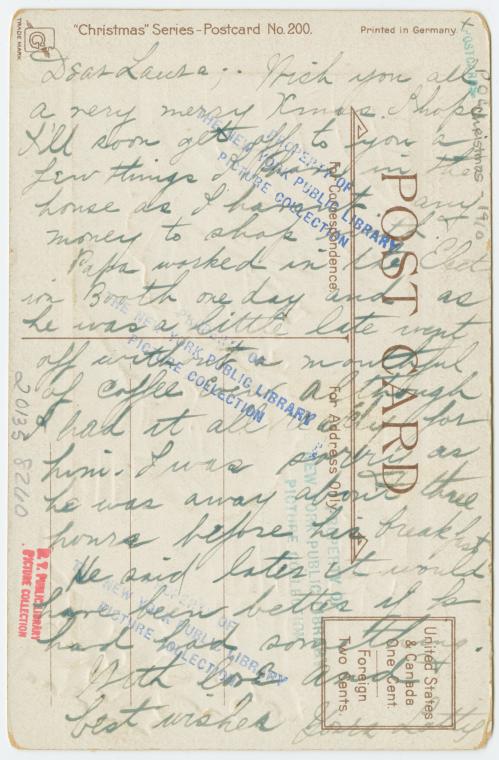 TRADE MARK
"Christmas" Series - Postcard No. 200.
Printed in Germany
Dear Laura, . Wish you all
a very merry Xmas. I hope
I'll soon get off to you a
few things I have in the
house as I haven't any
money to shop with
Papa worked in the Elect
ion Booth one day and as
he was a little late went
off without a mouthful
of coffee even although
I had it all ready for
him. I was sorry as
he was away about three
hours before his breakfast
He said later it would
have been better if he
had had something.
With love and
best wishes
POST CARD
For Correspondence.
For Address Only.
United States
& Canada
One Cent.
Foreign
Two Cents
PROPERTY OF
THE NEW YORK PUBLIC LIBRARY
PICTURE COLLECTION
PROPERTY OF
THE NEW YORK PUBLIC LIBRARY
PICTURE COLLECTION
PROPERTY OF
NEW YORK PUBLIC LIBRARY
PICTURE COLLECTION
N. Y. PUBLIC LIBRARY
PICTURE COLLECTION
POSTCARDS
Christmas - 1910